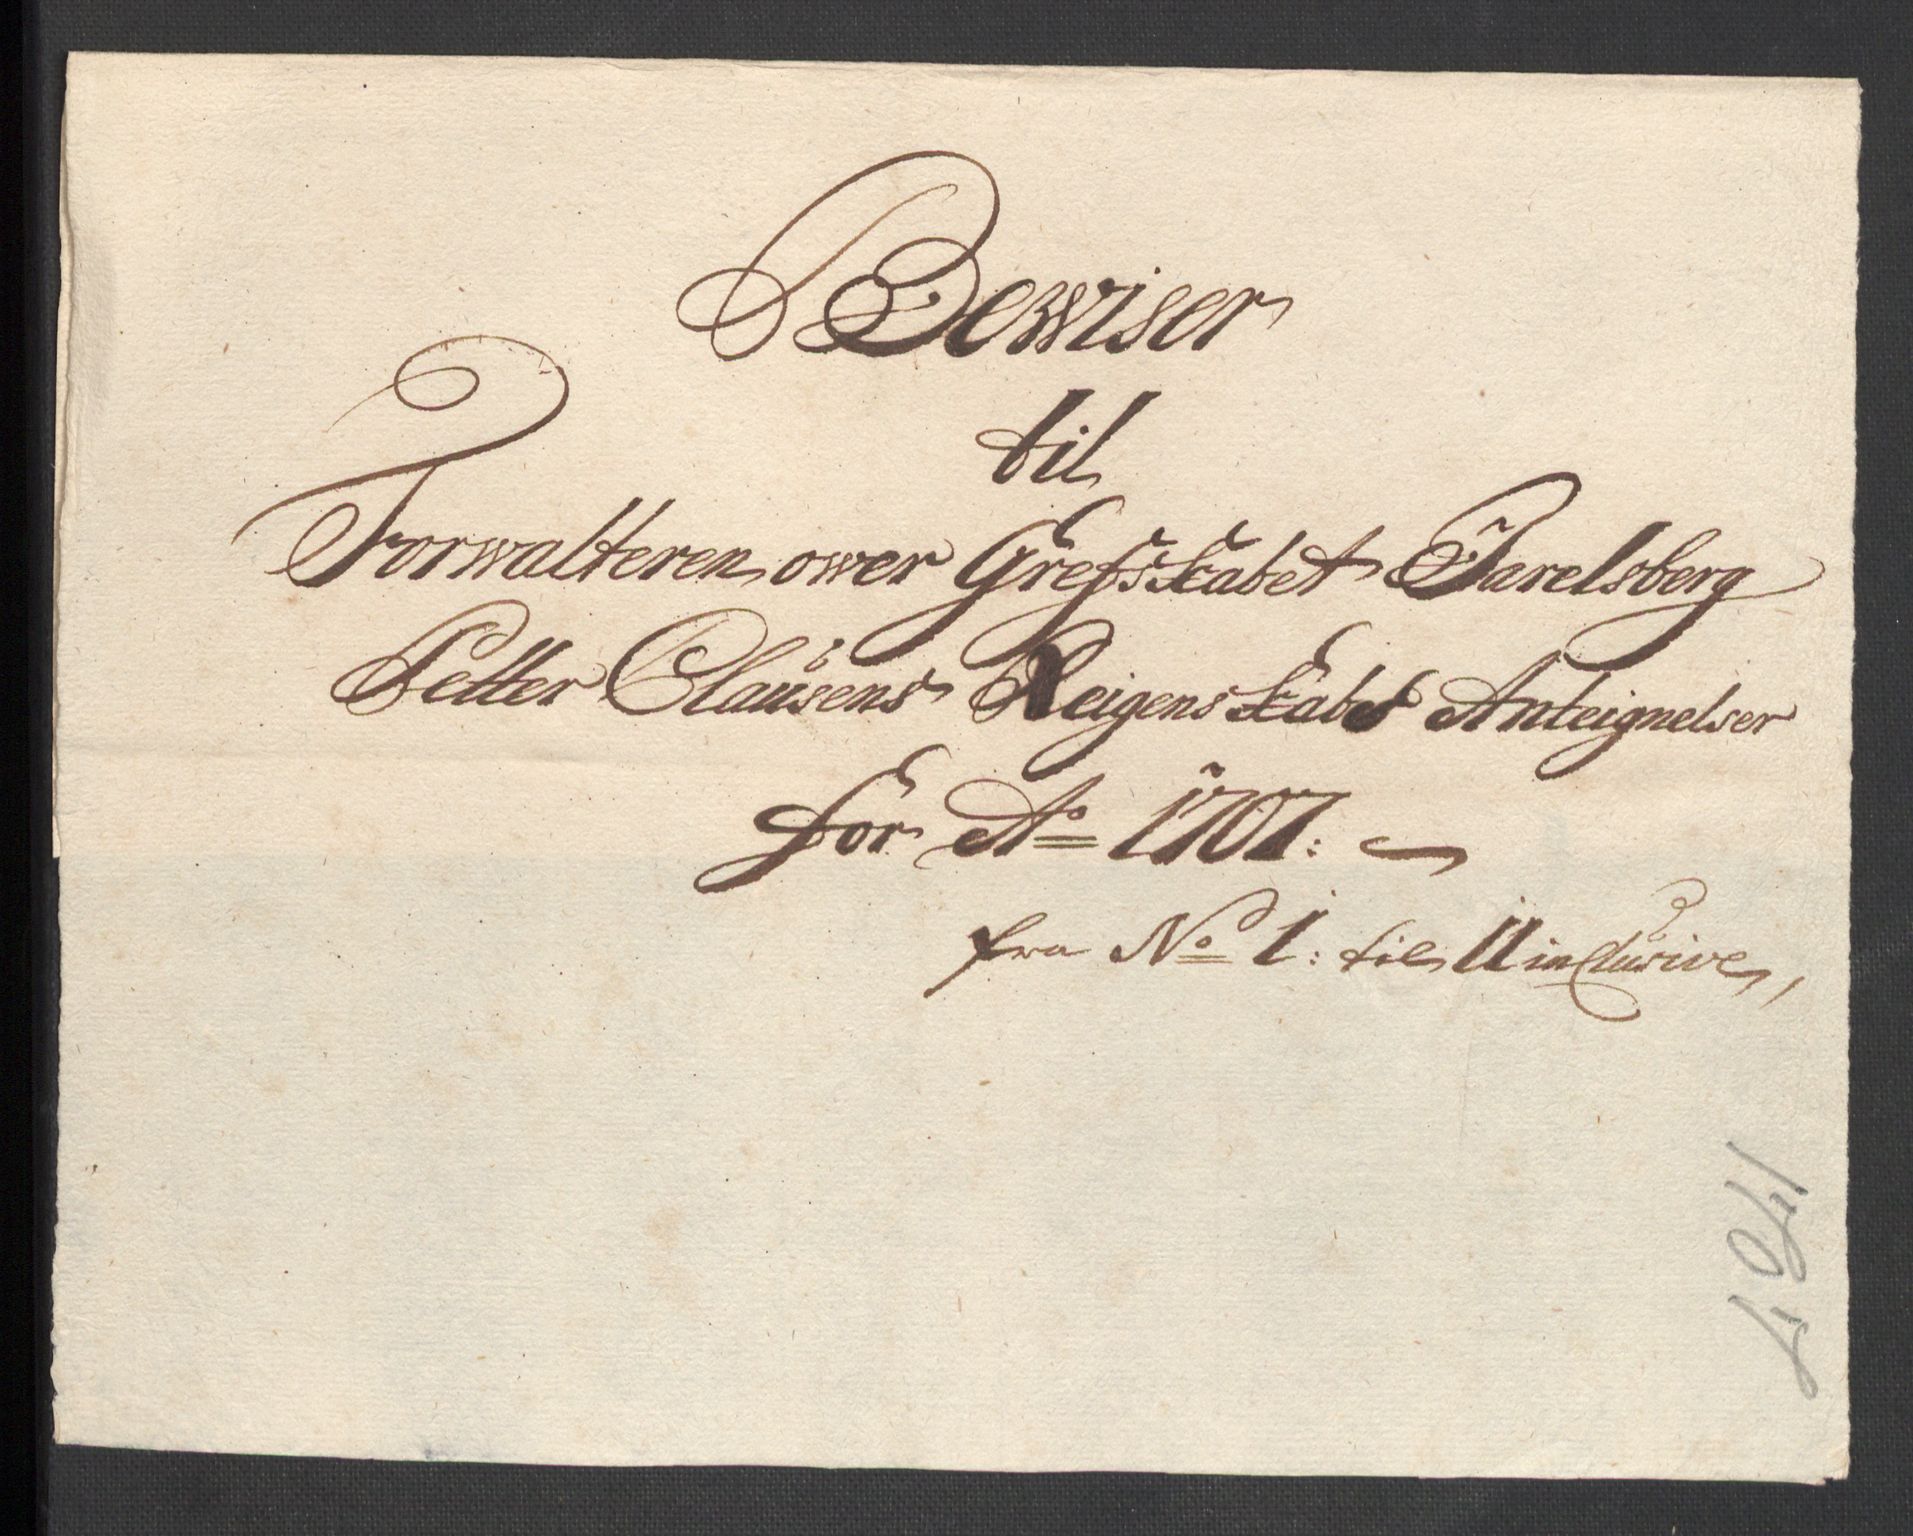 Bewiser
til
Forwalteren ower Grefsskabet Jarelsberg
Petter Clausens Reigenskabs Anteignelser
for Ao 1707:
fra No 1: til 11 inclusive,
1707